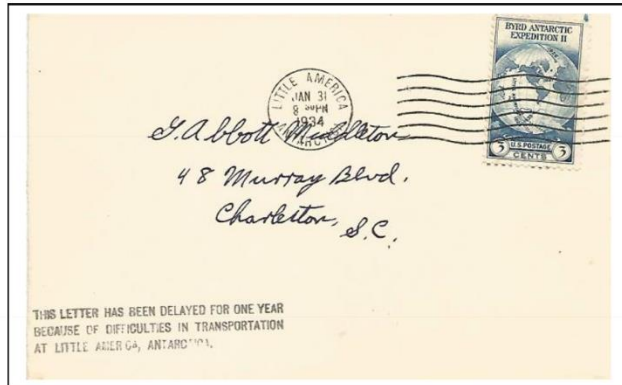 BYRD ANTARCTIC
EXPEDITION II
3 U.S. POSTAGE 3
CENTS
LITTLE AMERICA
JAN 31
8
1934
G. Abbott Middleton
48 Murray Blvd.
Charleston,
S.C.
THIS LETTER HAS BEEN DELAYED FOR ONE YEAR
BECAUSE OF DIFFICULTIES IN TRANSPORTATION
AT LITTLE AMERICA, ANTARCTICA.